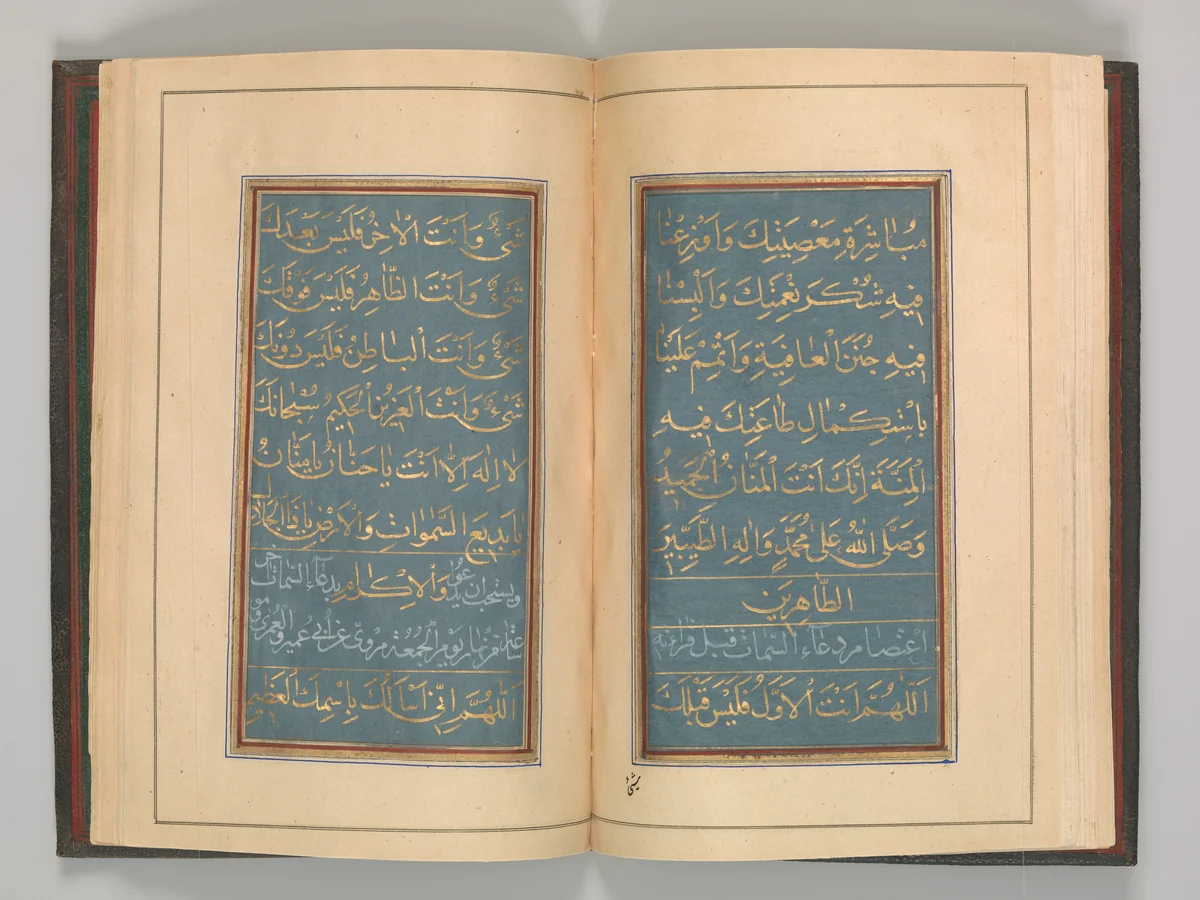 مُبَاشِرَةِ مَعْصِيَتِكَ وَاَوْزِعْنَا
فِيهِ شُكْرَ نِعْمَتِكَ وَاَلْبِسْنَا
فِيهِ جُنَنَ الْعَافِيَةِ وَاَتْمِمْ عَلَيْنَا
بِاسْتِكْمَالِ طَاعَتِكَ فِيهِ
الْمِنَّةَ اِنَّكَ اَنْتَ الْمَنَّانُ الْحَمِيدُ
وَصَلَّى اللّٰهُ عَلٰى مُحَمَّدٍ وَاٰلِهِ الطَّيِّبِينَ
الطَّاهِرِينَ
دعاء السمات قبل قرائته
اَللّٰهُمَّ اَنْتَ الْاَوَّلُ فَلَيْسَ قَبْلَكَ
شئ
شَيْءٌ وَاَنْتَ الْاٰخِرُ فَلَيْسَ بَعْدَكَ
شَيْءٌ وَاَنْتَ الظَّاهِرُ فَلَيْسَ فَوْقَكَ
شَيْءٌ وَاَنْتَ الْبَاطِنُ فَلَيْسَ دُونَكَ
شَيْءٌ وَاَنْتَ الْعَزِيزُ الْحَكِيمُ سُبْحَانَكَ
لَا اِلٰهَ اِلَّا اَنْتَ يَا حَنَّانُ يَا مَنَّانُ
يَا بَدِيعَ السَّمٰوَاتِ وَالْاَرْضِ يَا ذَا الْجَلَالِ
وَالْاِكْرَامِ
ويستحب ان يدعوا بدعاء السمات اخر
ساعة من نهار يوم الجمعة مروى عن ابي عمرو العمرى
اَللّٰهُمَّ اِنّٖى اَسْاَلُكَ بِاسْمِكَ الْعَظِيمِ